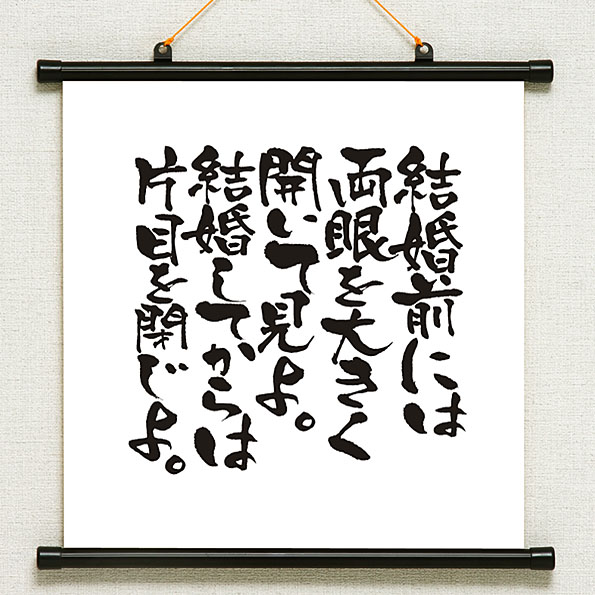 結婚前には
両眼を大きく
開いて見よ。
結婚してからは
片目を閉じよ。